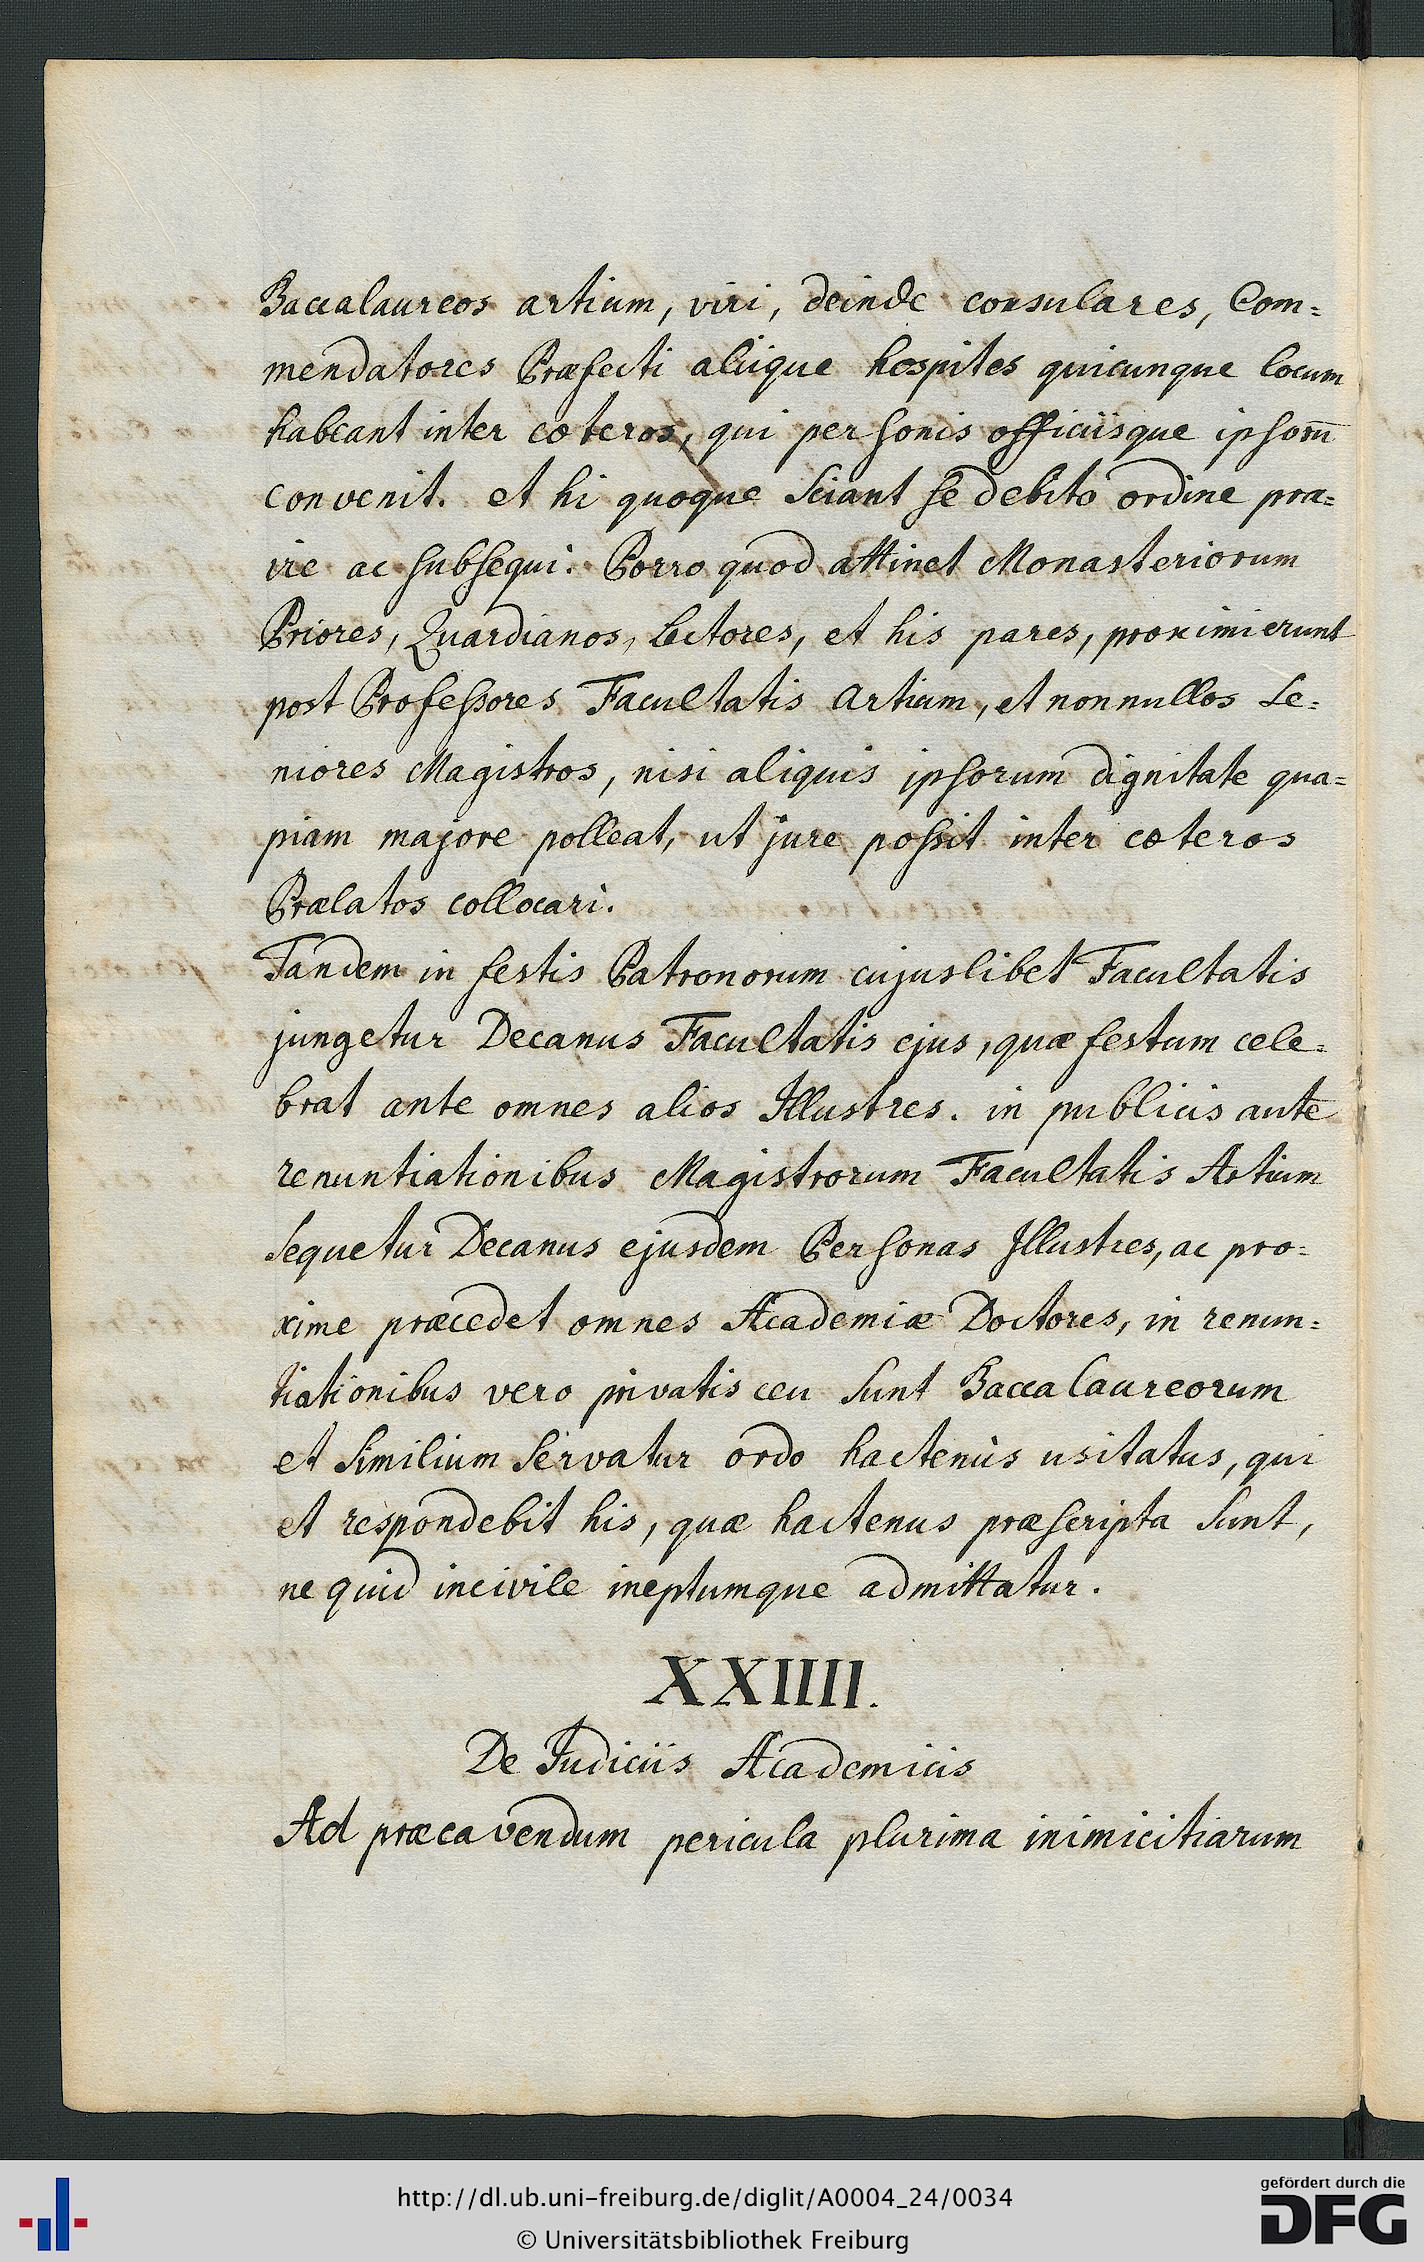 Baccalaureos artium, viri, deinde consulares, Com=
mendatores Præfecti aliique hospites quicunque locum
habeant inter cæteros, qui personis officiisque ipsorū
convenit. et hi quoque sciant se debito ordine præ=
ire ac subsequi. Porro quod attinet Monasteriorum
Priores, Quardianos, lectores, et his pares, proximi erunt
post Professores Facultatis artium, et nonnullos se=
niores Magistros, nisi aliquis ipsorum dignitate qua=
piam majore polleat, ut jure possit inter cæteros
Prælatos collocari.
Tandem in festis Patronorum cujuslibet Facultatis
jungetur Decanus Facultatis ejus, quæ festum cele=
brat ante omnes alios Illustres. in publicis autē
renuntiationibus Magistrorum Facultatis Artium
sequetur Decanus ejusdem Personas Illustres, ac pro=
xime præcedet omnes Academiæ Doctores, in renun=
tiationibus vero privatis ceu sunt Baccalaureorum
et similium servatur ordo hactenùs usitatus, qui
et respondebit his, quæ hactenus præscripta sunt,
ne quid incivile ineptumque admittatur.
XXIIII.
De Judiciis Academicis
Ad præcavendum pericula plurima inimicitiarum
http://dl.ub.uni-freiburg.de/diglit/A0004_24/0034
© Universitätsbibliothek Freiburg
gefördert durch die
DFG